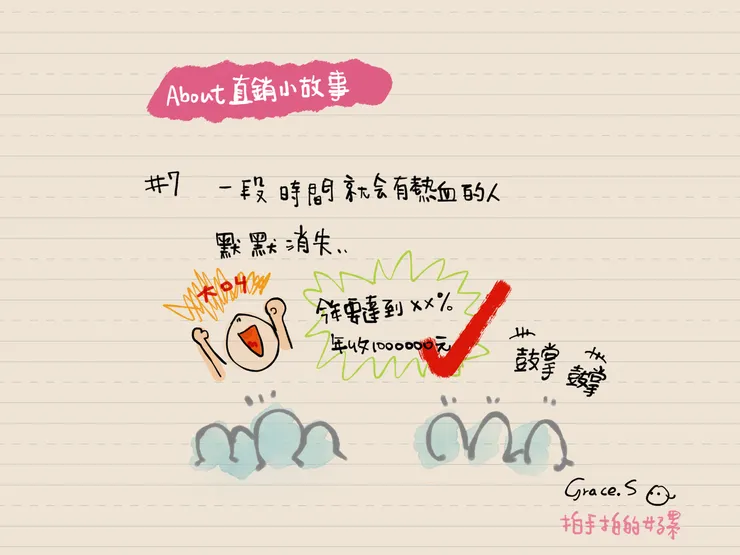 About直銷小故事
#7 一段時間就会有熱血的人
默默消失..
大吼
今年要達到xx%
年收1000000元
鼓掌
鼓掌
Grace.S
拍手拍的好累